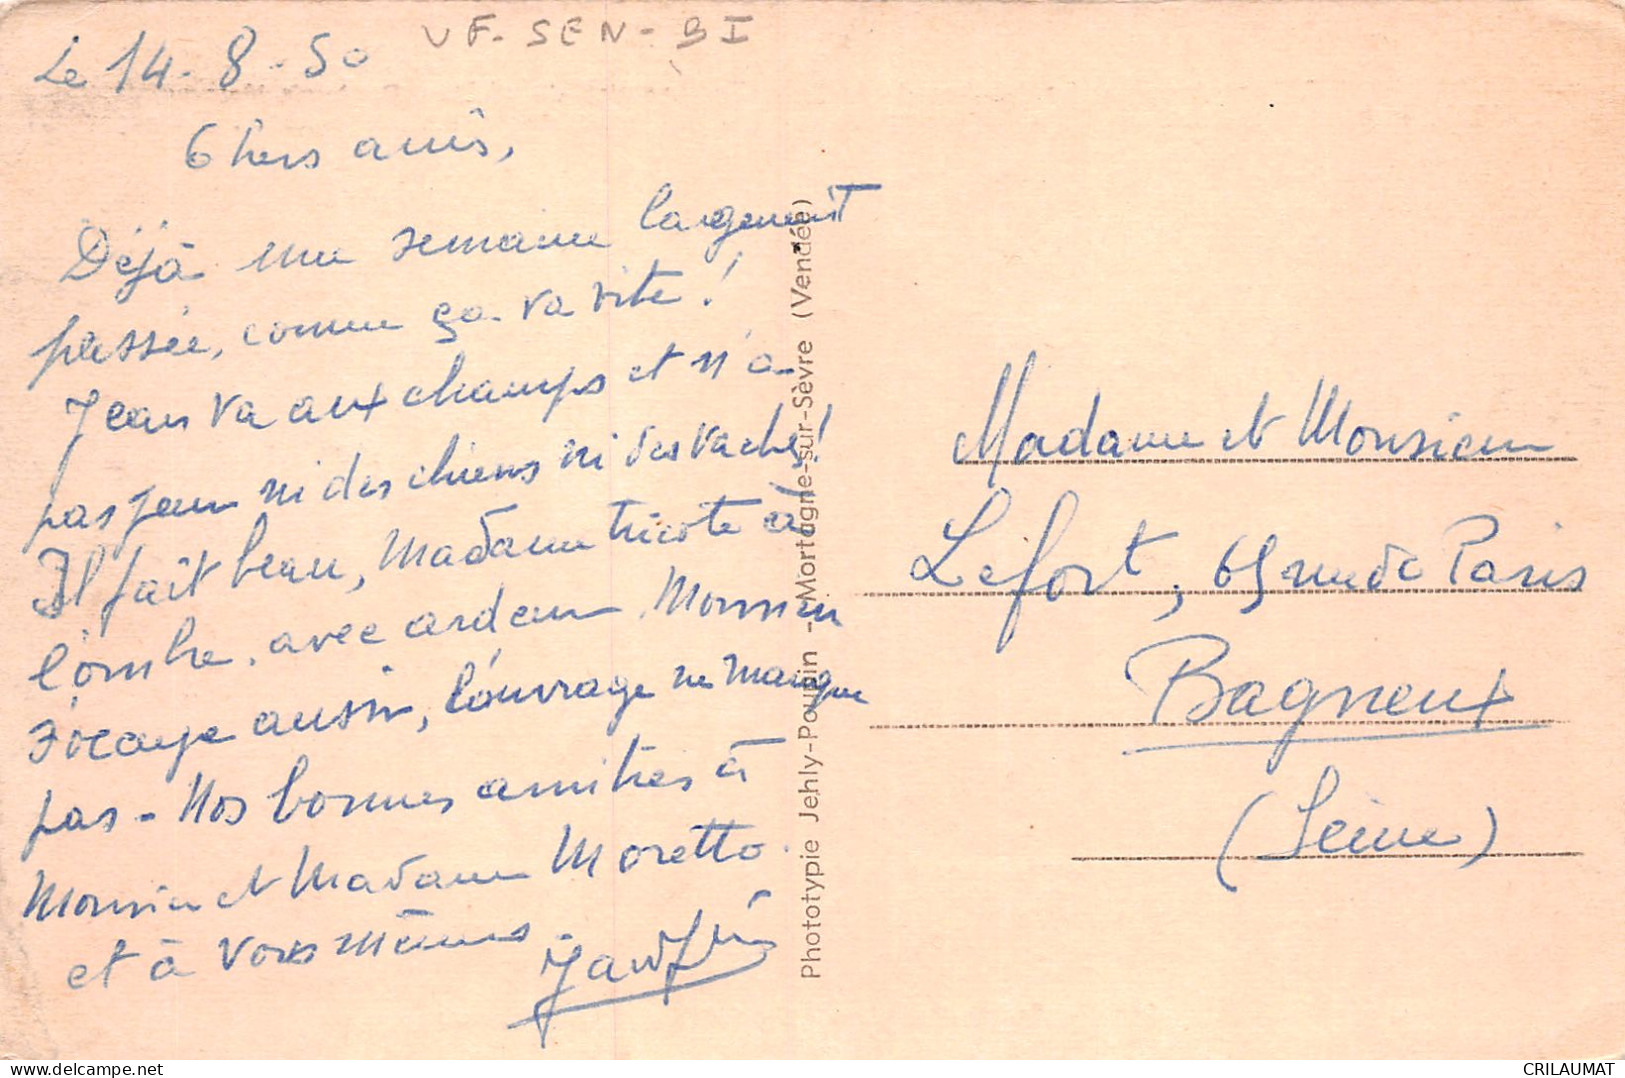 VF-SEN-BI
Le 14-8-50
Chers amis,
Déjà une semaine largement
passée, comme ça va vite !
Jean va aux champs et n'a
pas peur ni des chiens ni des vaches !
Il fait beau, Madame tricote à
l'ombre avec ardeur Monsieur
s'occupe aussi, l'ouvrage ne manque
pas - Nos bonnes amitiés à
Monsieur et Madame Moretto.
et à vous mêmes
Phototypie Jehly-Poupin - Mortagne-sur-Sèvre (Vendée)
Madame et Monsieur
Lefort, 65 rue de Paris
Bagneux
(Seine)
www.delcampe.net
CRILAUMAT